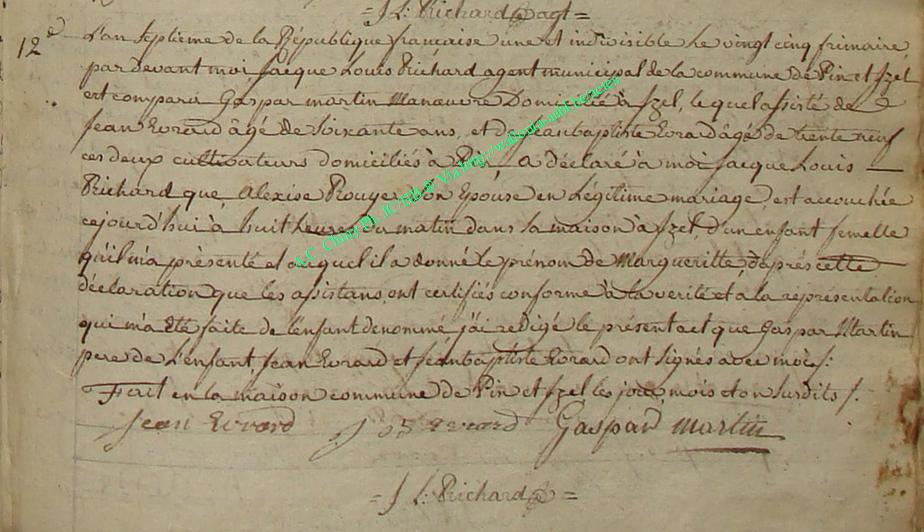 = J L: Richard agt =
12e L'an Septieme de la République francaise une et indivisible Le vingt cinq frimaire
par devant moi Jacque Louis Richard agent municipal de la commune de Pin et Izel
est comparu Gaspar martin Manœuvre Domicilié à Izel, le quel assisté de
Jean Evrard âgé de Soixante ans, et de jeanbaptiste Evrard âgé de trente neuf
ces deux cultivateurs domiciliés à Pin a déclaré à moi Jacque Louis
Richard que, Alexise Rouyer Son Epouse en Légitime mariage, est accouchée
cejourd'hui à huit heures du matin dans sa maison à Izel, d'un enfant femelle
qu'il m'a présenté et auquel il a donné Le prénom de Margueritte, d'aprés cette
déclaration que les assistans ont certifiés conforme à la verité et a la réprésentation
qui m'a été faite de l'enfant denommé j'ai redigé le présent act que Gaspar Martin
pere de L'enfant, Jean Evrard et jéanbaptiste Evrard ont signés avec moi :
Fait en la maison commune de Pin et Izel les jour mois et an Surdits /.
Jean Evrard J B Evrard Gaspar martin
= J L: Richard =